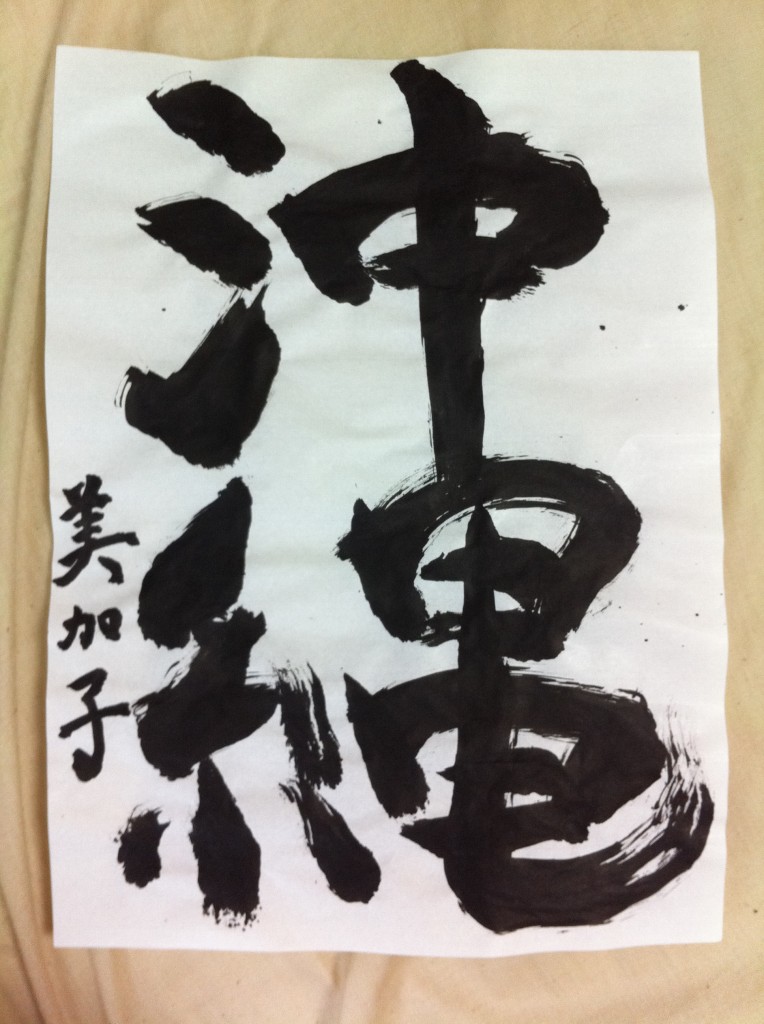 沖縄
美加子